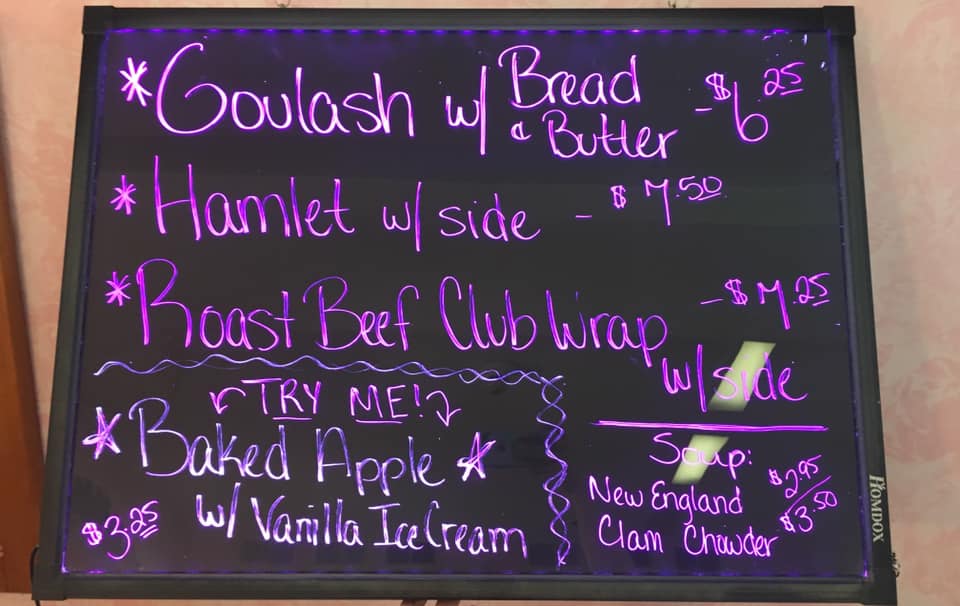 *Goulash w/ Bread & Butter - $6.25
*Hamlet w/ side - $7.50
*Roast Beef Club Wrap - $7.25
w/ side
TRY ME!
*Baked Apple*
w/ Vanilla Ice Cream
$3.25
Soup:
New England
Clam Chowder
$2.95/
$3.50
HOMDOX